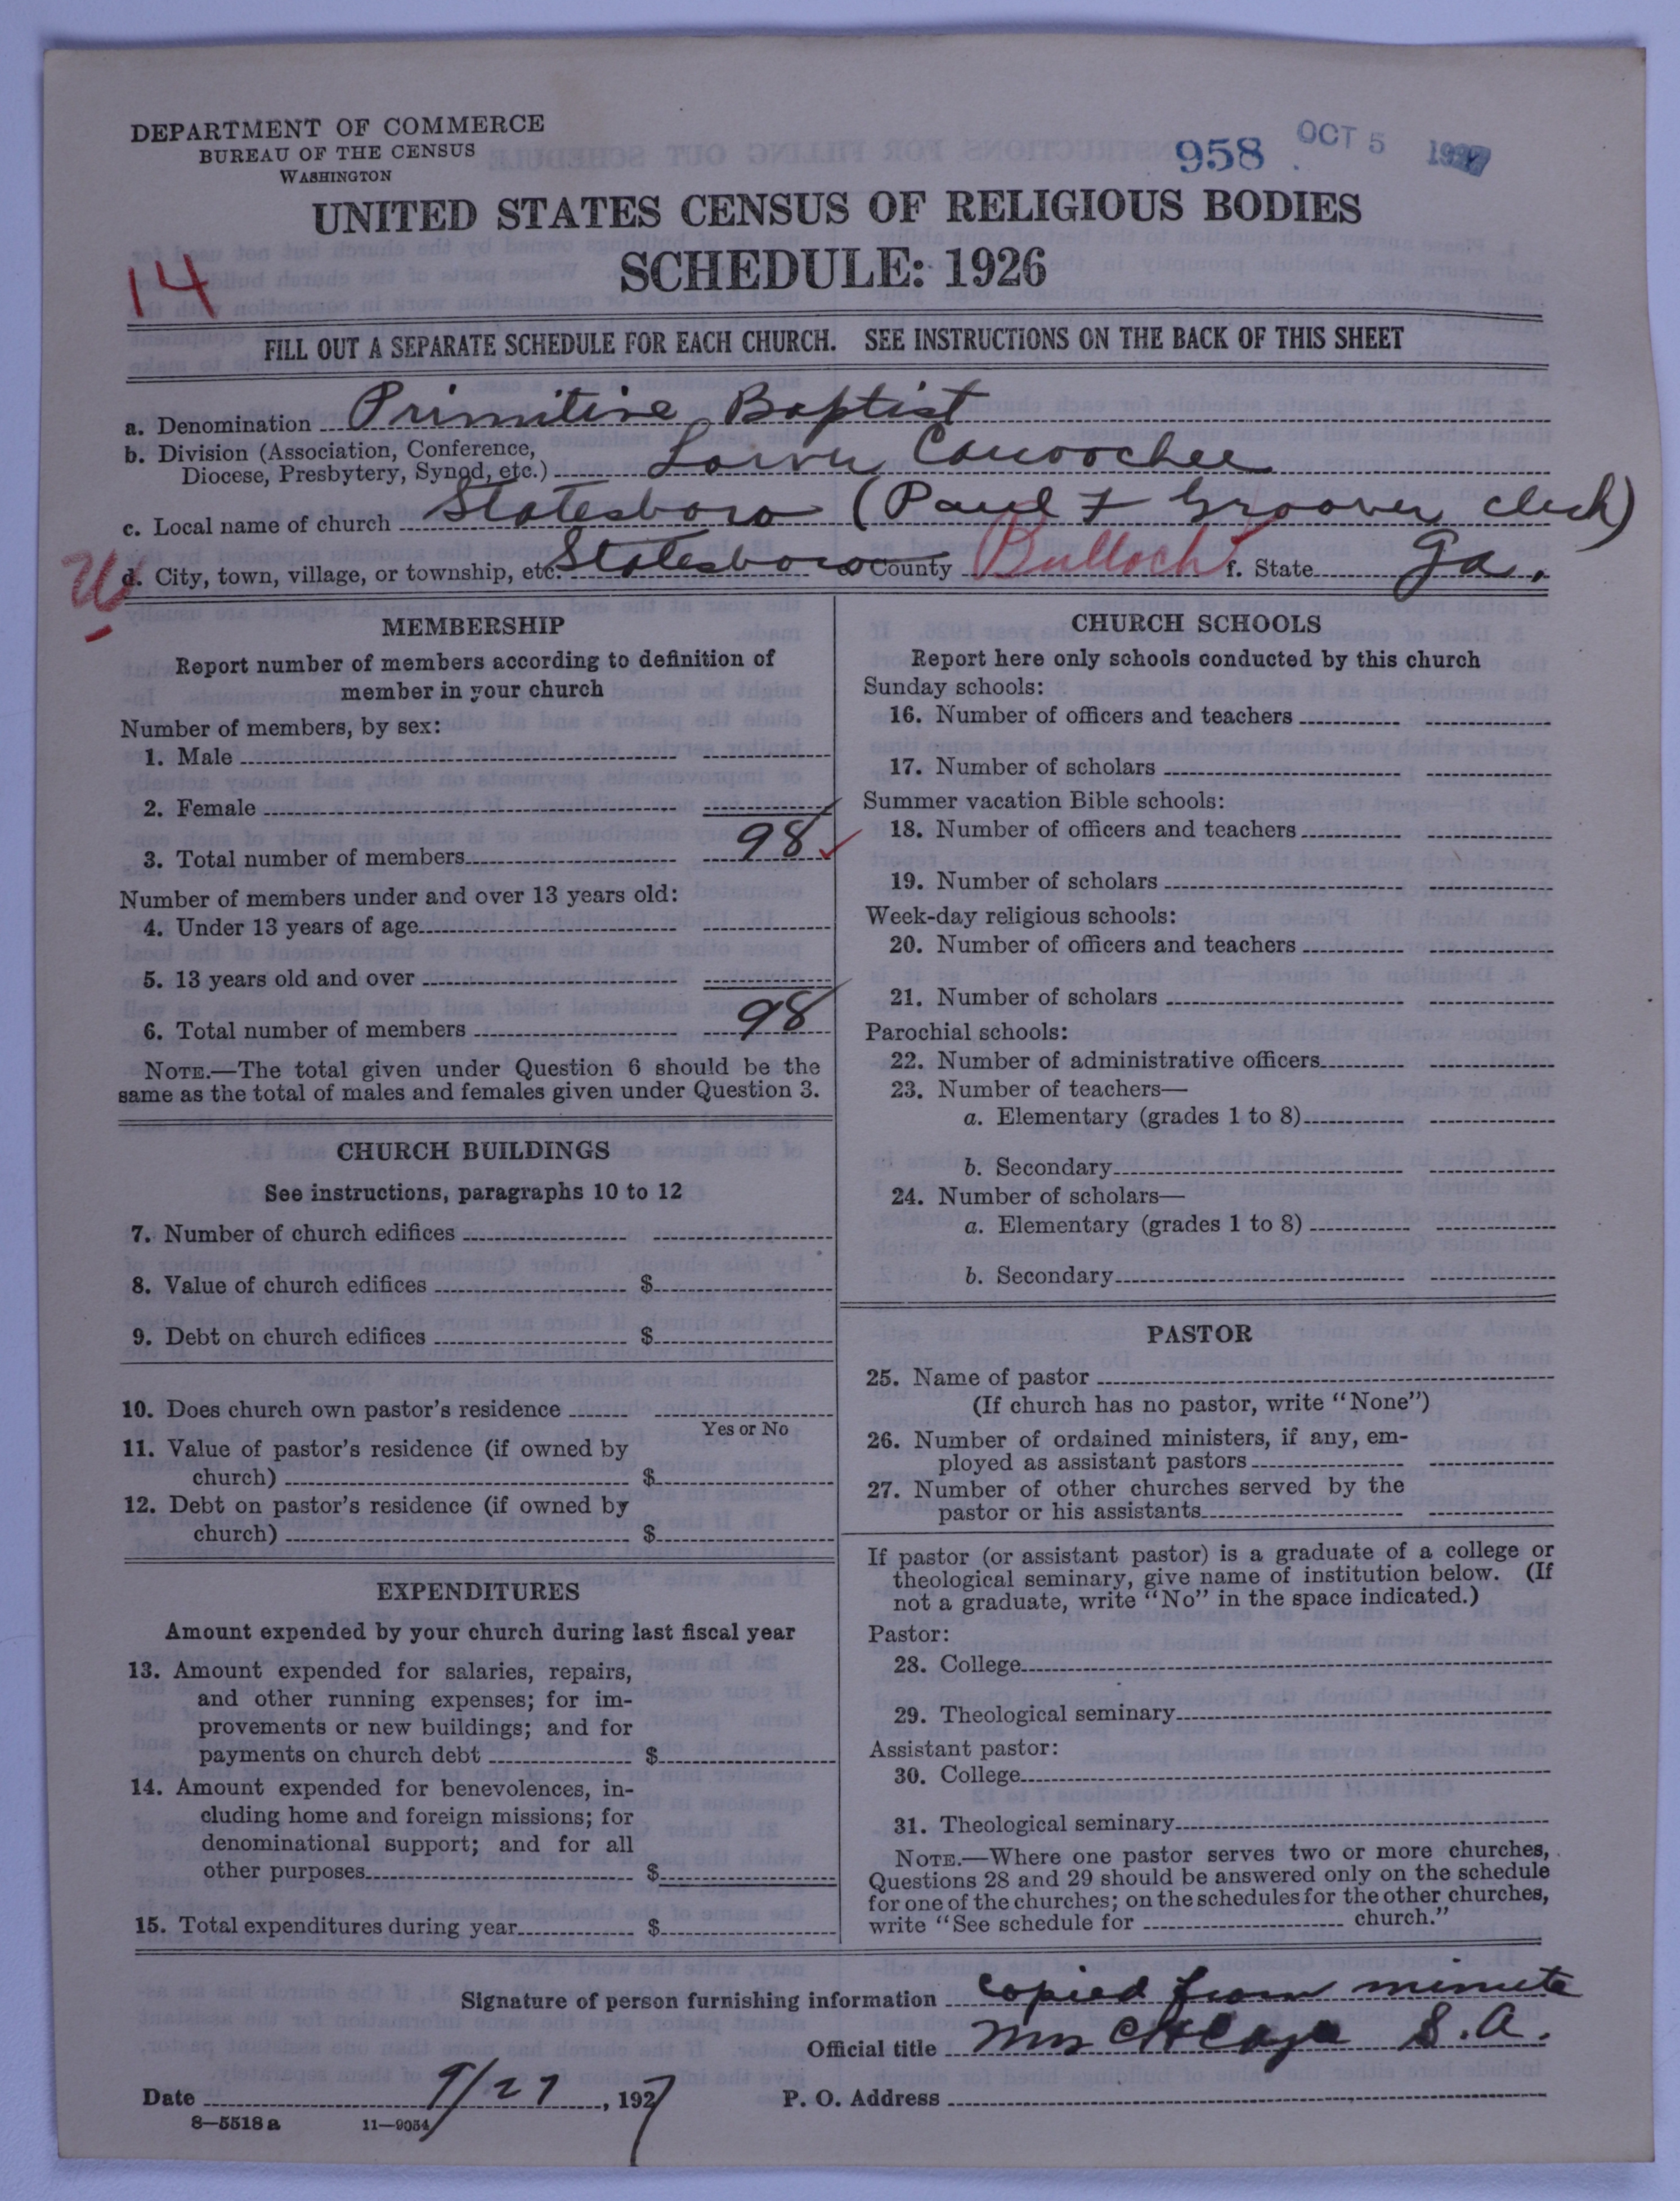 DEPARTMENT OF COMMERCE
BUREAU OF THE CENSUS
WASHINGTON
958 OCT 5 1927
UNITED STATES CENSUS OF RELIGIOUS BODIES
SCHEDULE: 1926
14
FILL OUT A SEPARATE SCHEDULE FOR EACH CHURCH. SEE INSTRUCTIONS ON THE BACK OF THIS SHEET
a. Denomination Primitive Baptist
b. Division (Association, Conference,
Diocese, Presbytery, Synod, etc.) Lower Canoochee
c. Local name of church Statesboro (Paul F Groover, clerk)
d. City, town, village, or township, etc. Statesboro County Bulloch f. State Ga.
MEMBERSHIP
Report number of members according to definition of
member in your church
Number of members, by sex:
1. Male
2. Female
3. Total number of members 98
Number of members under and over 13 years old:
4. Under 13 years of age
5. 13 years old and over
6. Total number of members 98
NOTE.—The total given under Question 6 should be the
same as the total of males and females given under Question 3.
CHURCH BUILDINGS
See instructions, paragraphs 10 to 12
7. Number of church edifices
8. Value of church edifices $
9. Debt on church edifices $
10. Does church own pastor's residence
Yes or No
11. Value of pastor's residence (if owned by
church) $
12. Debt on pastor's residence (if owned by
church) $
EXPENDITURES
Amount expended by your church during last fiscal year
13. Amount expended for salaries, repairs,
and other running expenses; for im-
provements or new buildings; and for
payments on church debt $
14. Amount expended for benevolences, in-
cluding home and foreign missions; for
denominational support; and for all
other purposes $
15. Total expenditures during year $
CHURCH SCHOOLS
Report here only schools conducted by this church
Sunday schools:
16. Number of officers and teachers
17. Number of scholars
Summer vacation Bible schools:
18. Number of officers and teachers
19. Number of scholars
Week-day religious schools:
20. Number of officers and teachers
21. Number of scholars
Parochial schools:
22. Number of administrative officers
23. Number of teachers—
a. Elementary (grades 1 to 8)
b. Secondary
24. Number of scholars—
a. Elementary (grades 1 to 8)
b. Secondary
PASTOR
25. Name of pastor
(If church has no pastor, write "None")
26. Number of ordained ministers, if any, em-
ployed as assistant pastors
27. Number of other churches served by the
pastor or his assistants
If pastor (or assistant pastor) is a graduate of a college or
theological seminary, give name of institution below. (If
not a graduate, write "No" in the space indicated.)
Pastor:
28. College
29. Theological seminary
Assistant pastor:
30. College
31. Theological seminary
NOTE.—Where one pastor serves two or more churches,
Questions 28 and 29 should be answered only on the schedule
for one of the churches; on the schedules for the other churches,
write "See schedule for church."
Signature of person furnishing information copied from minute
Official title Mrs C H S. A.
Date 9/27, 1927 P. O. Address
8—5518a 11—9054